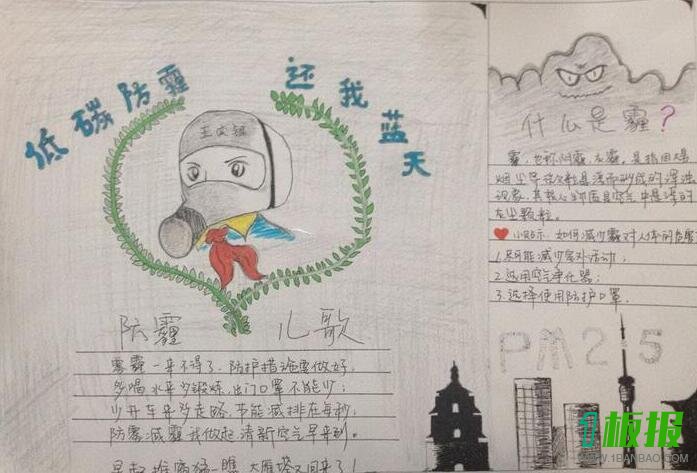 低碳防霾 还我蓝天
什么是霾？
霾，也称阴霾、灰霾，是指因大量
烟尘等微粒悬浮而形成的浑浊
现象，其核心物质是空气中悬浮的
灰尘颗粒。
小贴示：如何减少霾对人体的危害
1.尽可能减少室外活动；
2.选用空气净化器；
3.选择使用防护口罩。
PM2.5
防霾 儿歌
雾霾一来不得了，防护措施要做好；
多喝水来少锻炼，出门口罩不能少；
少开车来多走路，节能减排在每秒；
防雾减霾我做起，清新空气早来到。
大雁塔又回来了
板报
WWW.1BANBAO.COM